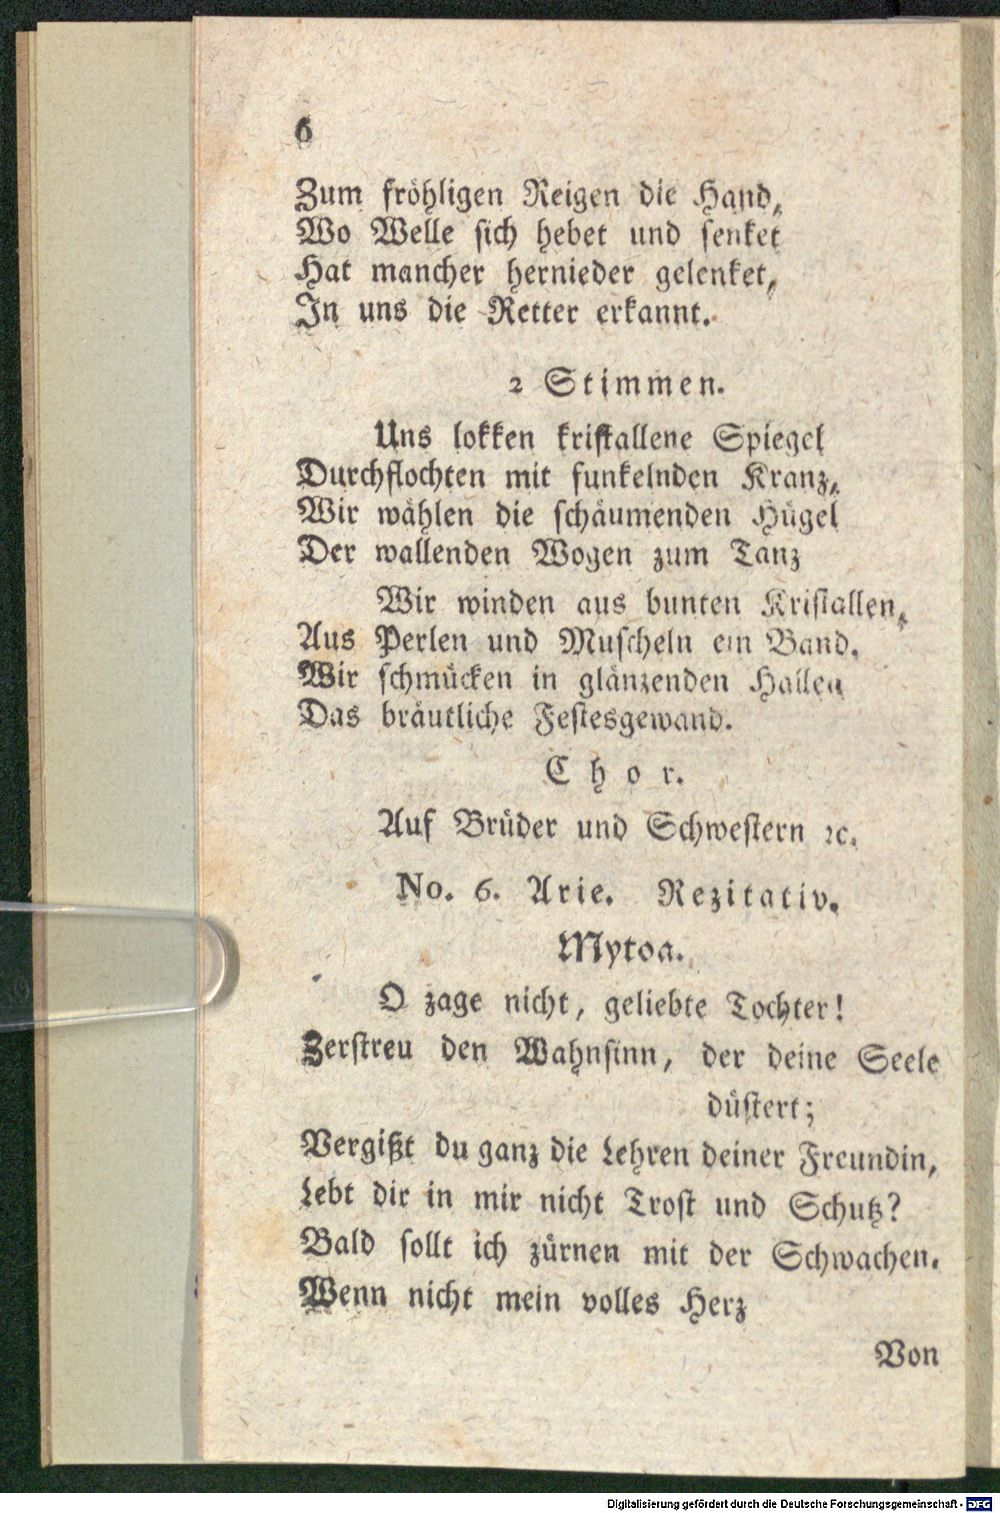 6
Zum fröhligen Reigen die Hand,
Wo Welle sich hebet und senket
Hat mancher hernieder gelenket,
In uns die Retter erkannt.
2 Stimmen.
Uns lokken kristallene Spiegel
Durchflochten mit funkelnden Kranz,
Wir wählen die schäumenden Hügel
Der wallenden Wogen zum Tanz
Wir winden aus bunten Kristallen,
Aus Perlen und Muscheln ein Band.
Wir schmücken in glänzenden Hallen
Das bräutliche Festesgewand.
Chor.
Auf Brüder und Schwestern ꝛc.
No. 6. Arie. Rezitativ.
Mytoa.
O zage nicht, geliebte Tochter!
Zerstreu den Wahnsinn, der deine Seele
düstert;
Vergißt du ganz die Lehren deiner Freundin,
Lebt dir in mir nicht Trost und Schutz?
Bald sollt ich zürnen mit der Schwachen.
Wenn nicht mein volles Herz
Von
Digitalisierung gefördert durch die Deutsche Forschungsgemeinschaft - DFG